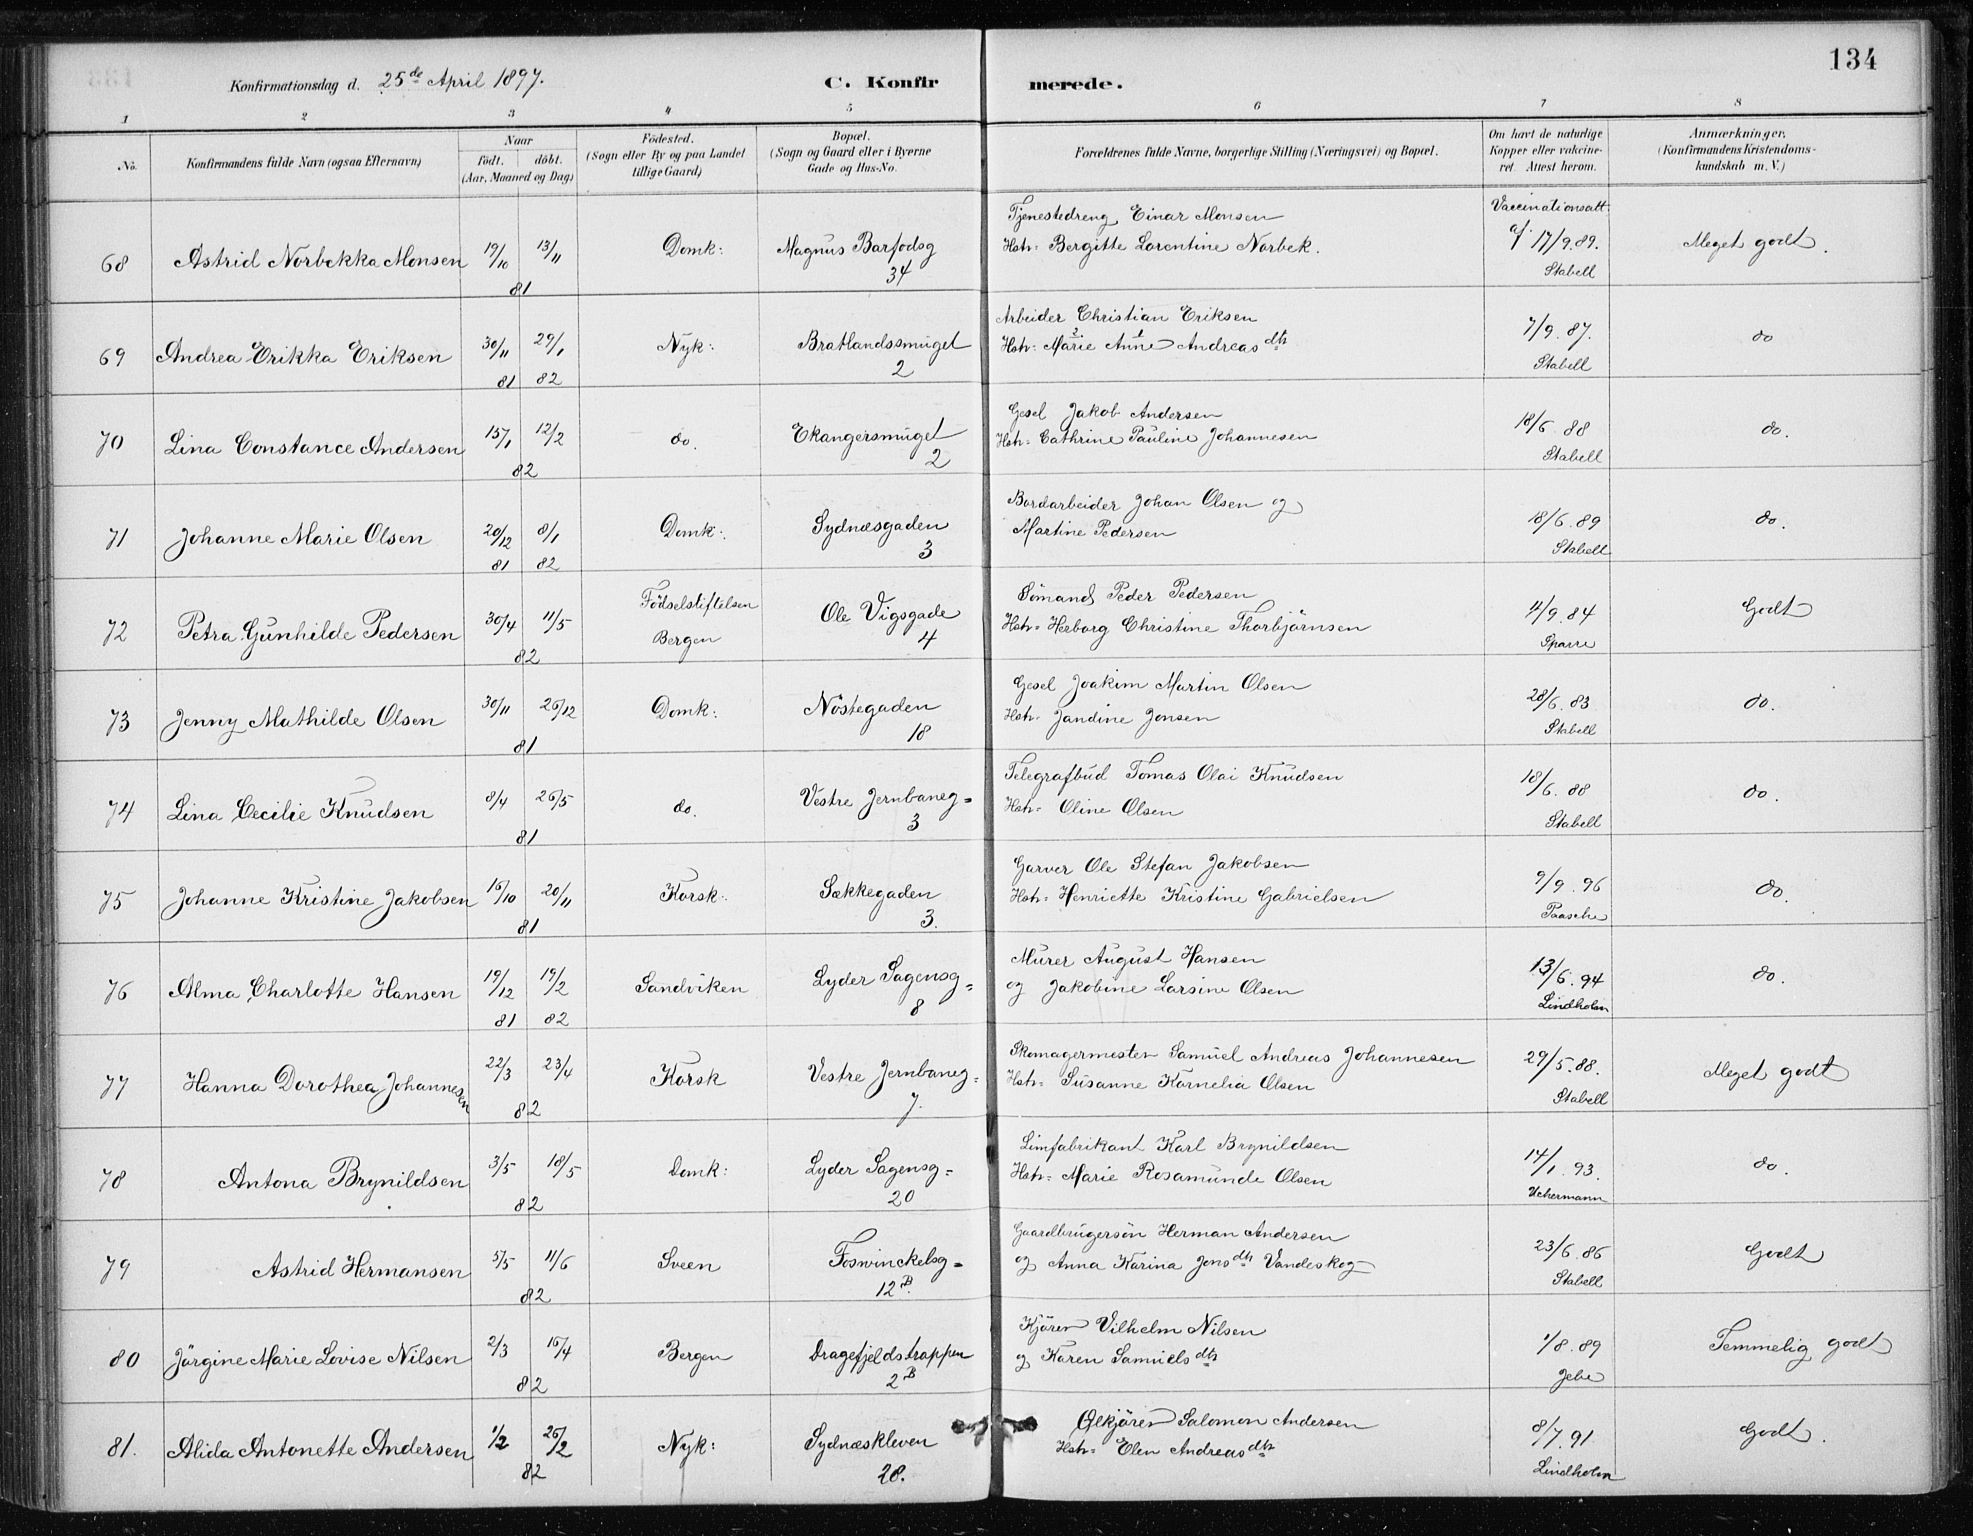 134
Konfirmationsdag d. 25de April 1897.
C. Konfirmerede.
1 2 3 4 5 6 7 8
No.
Konfirmandens fulde Navn (ogsaa Efternavn)
Naar
født. døbt.
(Aar, Maaned og Dag)
Fødested.
(Sogn eller By og paa Landet
tillige Gaard)
Bopæl.
(Sogn og Gaard eller i Byerne
Gade og Hus-No.
Forældrenes fulde Navne, borgerlige Stilling (Næringsvei) og Bopæl.
Om havt de naturlige
Kopper eller vakcine-
ret. Attest herom.
Anmærkninger.
(Konfirmandens Kristendoms-
kundskab m. V.)
68 Astrid Norbekka Monsen 19/10 13/11 81 Domk: Magnus Barfodsg 34
Tjenestedreng Einar Monsen
Hstr: Bergitte Lorentine Norbek.
Vaccinationsatt.
af 17/9.89. Stabell
Meget godt.
69 Andrea Erikka Eriksen 30/11 81 29/1 82 Nyk: Bratlandssmuget 2
Arbeider Christian Eriksen
Hstr: Marie 2 Anne 1 Andreasdtr
7/9.87. Stabell
do
70 Lina Constance Andersen 15/1 12/2 82 do. Ekangersmuget 2
Gesel Jakob Andersen
Hstr: Cathrine Pauline Johannesen
18/6 88 Stabell
do.
71 Johanne Marie Olsen 20/12 81 8/1 82 Domk: Sydnæsgaden 3
Bordarbeider Johan Olsen og
Martine Pedersen
18/6.89 Stabell
do.
72 Petra Gunhilde Pedersen 30/4 11/5 82 Fødselstiftelsen Bergen Ole Vigsgade 4
Sømand Peder Pedersen
Hstr: Herborg Christine Thorbjørnsen
11/9.84 Sparre
Godt
73 Jenny Mathilde Olsen 30/11 26/12 81 Domk: Nøstegaden 18
Gesel Joakim Martin Olsen
Hstr: Jandine Jonsen
28/6.83 Stabell
do.
74 Lina Cecilie Knudsen 8/4 26/5 81 do. Vestre Jernbaneg= 3
Telegrafbud Tomas Olai Knudsen
Hstr: Oline Olsen
18/6.88 Stabell
do.
75 Johanne Kristine Jakobsen 16/10 20/11 81 Korsk: Sækkegaden 3.
Garver Ole Stefan Jakobsen
Hstr: Henriette Kristine Gabrielsen
9/9.96 Paasche
do.
76 Alma Charlotte Hansen 19/12 81 19/2 82 Sandviken Lyder Sagensg= 8
Murer August Hansen
og Jakobine Larsine Olsen
13/6.94 Lindholm
do.
77 Hanna Dorothea Johannesen 22/3 23/4 82 Korsk Vestre Jernbaneg= 7.
Skomagermester Samuel Andreas Johannesen
Hstr: Susanne Kornelia Olsen
29/5.88. Stabell
Meget godt
78 Antona Brynildsen 3/5 18/5 82 Domk: Lyder Sagensg= 20
Limfabrikant Karl Brynildsen
Hstr: Marie Rosamunde Olsen
14/1.93. Uchermann
do.
79 Astrid Hermansen 5/5 11/6 82 Sveen Foswinckelsg= 12B.
Gaardbrugersøn Herman Andersen
og Anna Karina Jonsdtr Vandeskog
23/6.86 Stabell
Godt
80 Jørgine Marie Lovise Nilsen 2/3 16/4 82 Bergen Dragefjeldstrappen 2B
Kjører Vilhelm Nilsen
og Karen Samuelsdtr
1/8.89 Jebe
Temmelig godt
81. Alida Antonette Andersen 1/2 26/2 82 Nyk: Sydnæskleven 28.
Ølkjører Salomon Andersen
Hstr: Elen Andreasdtr
8/7.91 Lindholm
Godt.